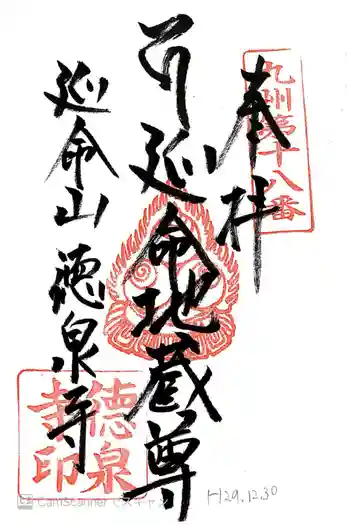 奉拝
九州第十八番
延命地蔵尊
延命山徳泉寺
徳泉
寺印
H29.12.30
CamScanner でスキャン